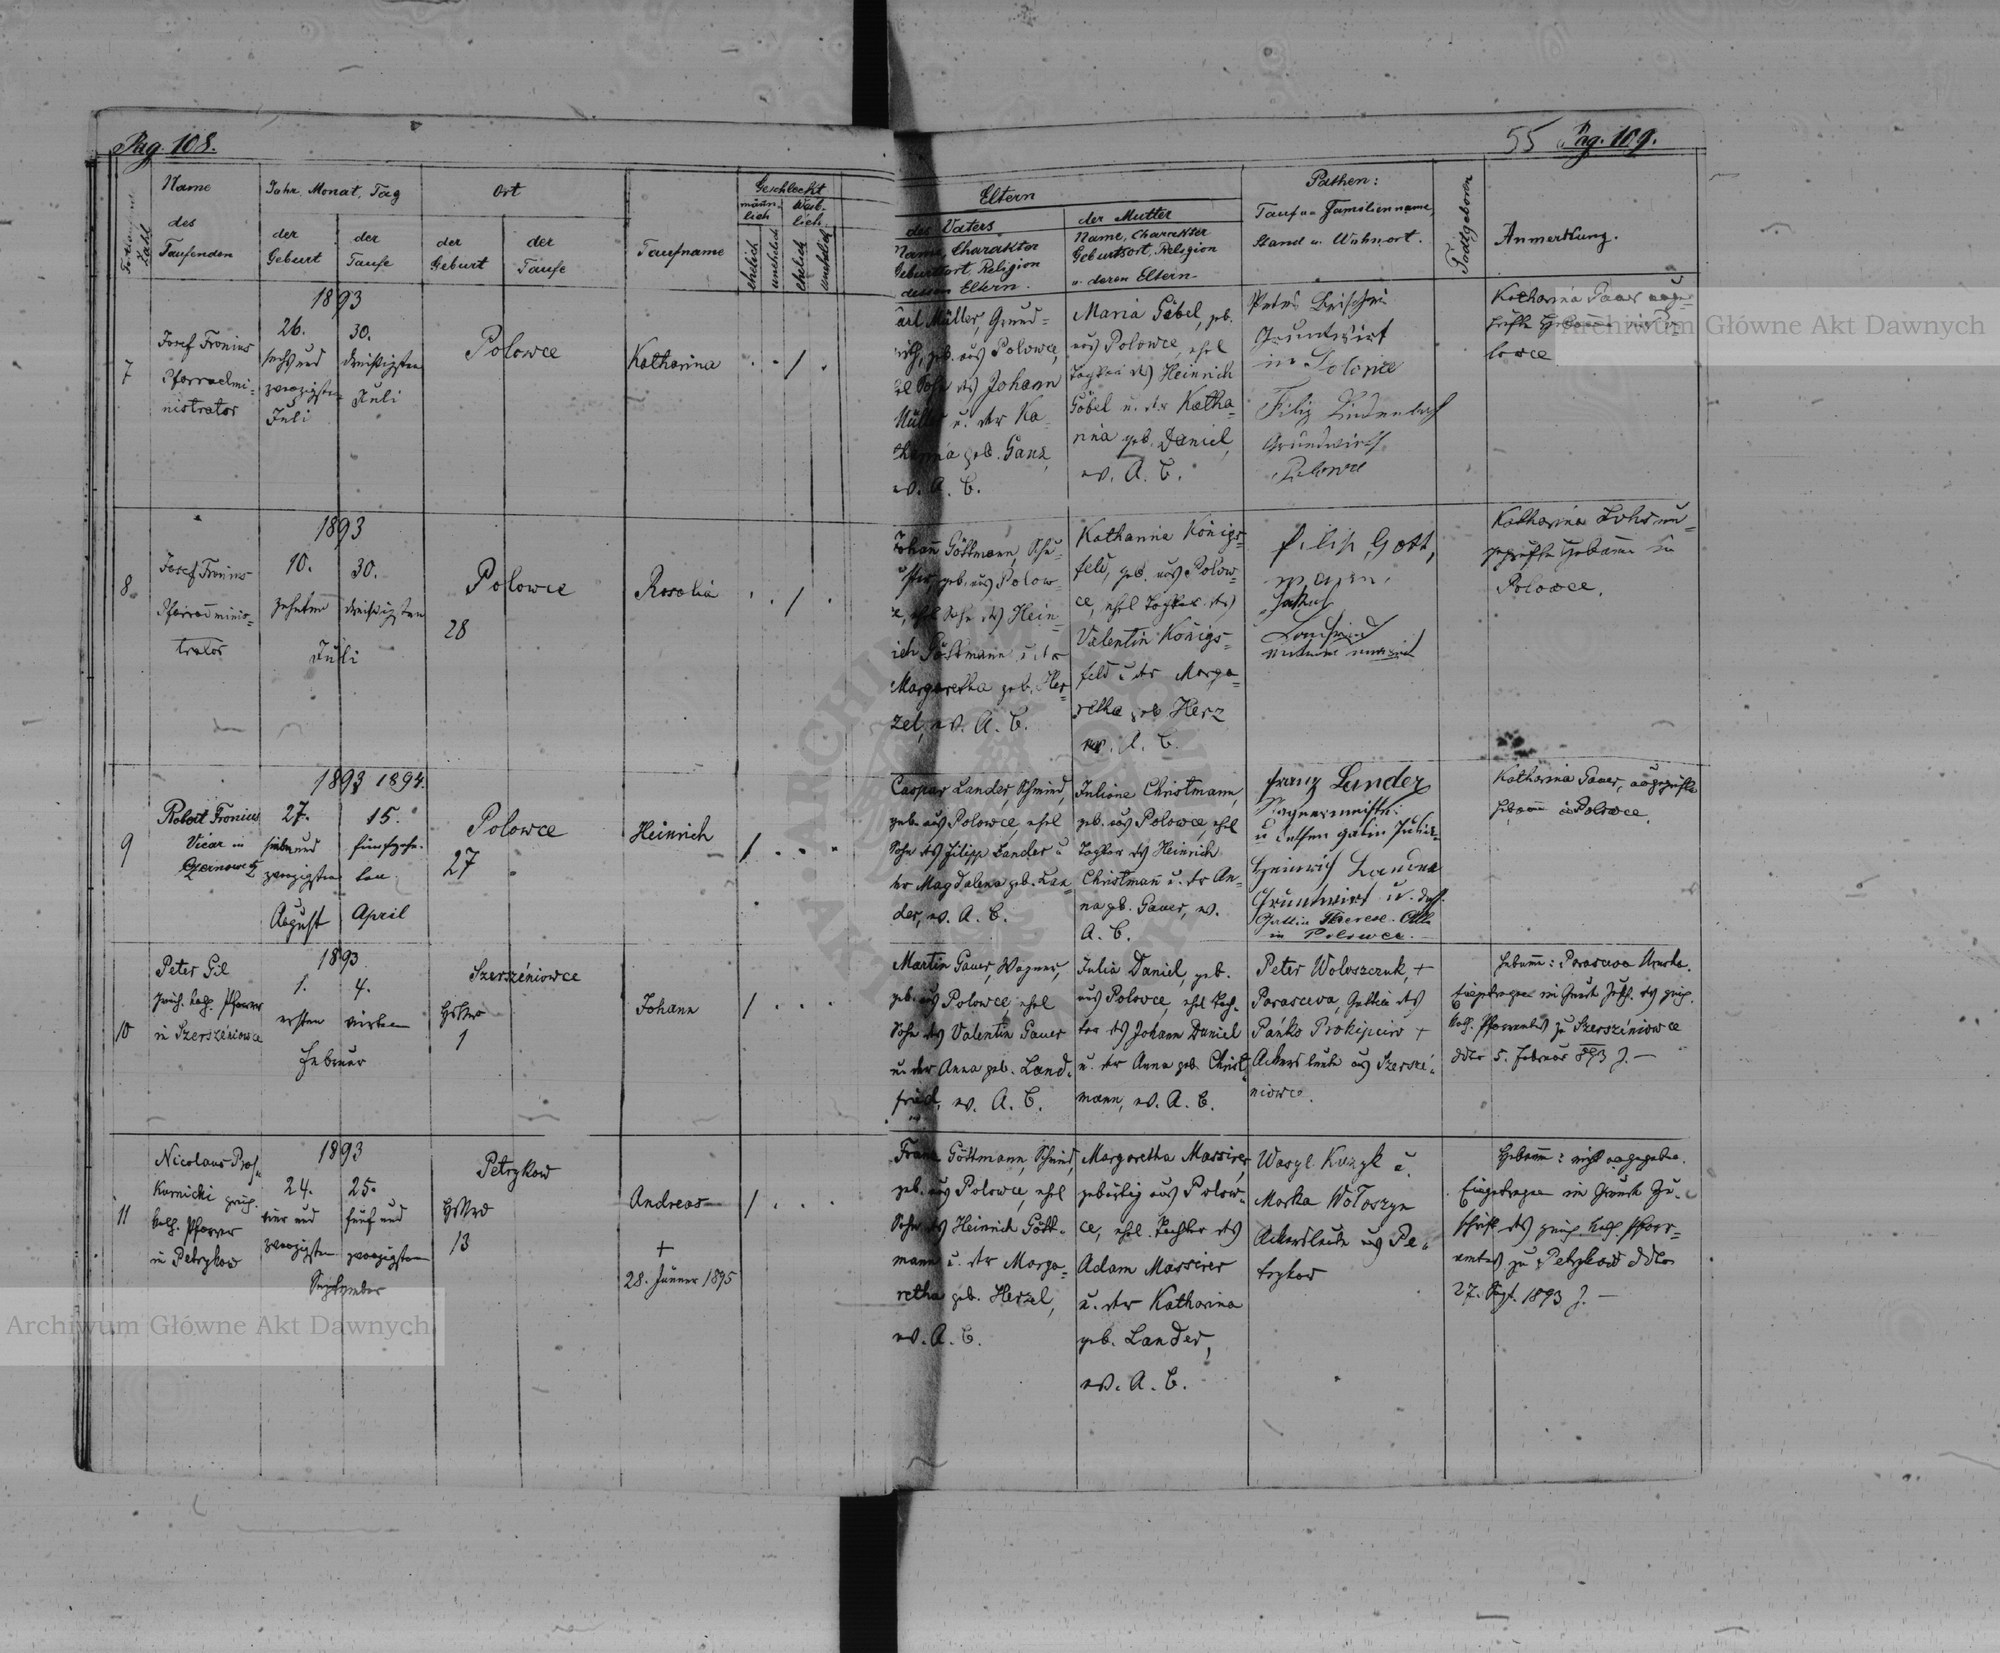 Pag. 108.
55 Pag. 109.
Fortlaufende Zahl
Name
des
Taufenden
Jahr, Monat, Tag
der
Geburt
der
Taufe
Ort
der
Geburt
der
Taufe
Taufname
Geschlecht
männ-
lich
Weib-
lich
ehelich
unehelich
ehelich
unehelich
Eltern
des Vaters
Name, Charakter
Geburtsort, Religion
dessen Eltern.
der Mutter
Name, Charakter
Geburtsort, Religion
u. deren Eltern.
Pathen:
Tauf u. Familienname,
Stand u. Wohnort.
Todtgeboren
Anmerkung.
7
Josef Fronius
Pfarradmi-
nistrator
1893
26.
sechs und
zwanzigsten
Juli
30.
dreißigsten
Juli
Polowce
Katharina
Carl Müller, Grund-
wirth, geb. aus Polowce,
ehel Sohn des Johann
Müller u. der Ka-
tharina geb. Ganz,
ev. A. C.
Maria Göbel, geb.
aus Polowce, ehel
Tochter des Heinrich
Göbel u. der Katha-
rina geb. Daniel,
ev. A. C.
Grundwirt
in Polowce
Filip
Grundwirth
Polowce
Katharina Gauer unge-
prüfte Hebamme in Po-
lowce
8
Josef Fronius
Pfarradminis-
trator
1893
10.
zehnten
30.
dreißigsten
Juli
Polowce
28
Rosalia
Johann Göttmann, Schu-
ster, geb. aus Polow-
ce, ehel Sohn des Hein-
rich Göttmann u. der
Margaretha geb. Her-
zel, ev. A. C.
Katharina Königs-
feld, geb. aus Polow-
ce, ehel Tochter des
Valentin Königs-
feld u. der Marga-
retha geb. Herz
ev. A. C.
Filip Gott,
mann,
Jakob
Katharina Lohr un-
geprüfte Hebamme in
Polowce.
9
Robert Fronius
Vicar in
Czernowitz
1893 1894.
27.
sieben und
zwanzigsten
August
15.
fünfzehn-
ten
April
Polowce
27
Heinrich
Caspar Lander, Schmied,
geb. aus Polowce, ehel
Sohn des Filipp Lander u
der Magdalena geb. Lan-
der, ev. A. C.
Juliane Christmann,
geb. aus Polowce, ehel
Tochter des Heinrich
Christmann u. der An-
na geb. Gauer, ev.
A. C.
Franz Lander
Wagnermeister
u dessen gatin Julia
Heinrich Lander
Grundwirt u. dess.
Gattin Therese. Alle
in Polowce.
Katharina Gauer, ungeprüfte
Hebamme in Polowce.
10
Peter Gil
griech. kath. Pfarrer
in Szerszeniowce
1893
1.
ersten
4.
vierten
Februar
Szerszéniowce
HsNro
1
Johann
Martin Gauer, Wagner,
geb. aus Polowce, ehel
Sohn des Valentin Gauer
u. der Anna geb. Land-
fried, ev. A. C.
Julia Daniel, geb.
aus Polowce, ehel Toch-
ter des Johann Daniel
u. der Anna geb. Christ-
mann, ev. A. C.
Peter Woloszczuk, +
Parascewa, Gattin des
Pańko Prokipciw +
Ackersleute aus Szerszé-
niowce.
Hebamme: Parascewa
Eingetragen im Grunde Zuschr. des griech.
kath. Pfarramtes zu Szerszéniowce
ddto 5. Februar 893 Z. —
11
Nicolaus Pros-
Kurnicki griech.
kath. Pfarrer
in Petrykow
1893
24.
vier und
zwanzigsten
25.
fünf und
zwanzigsten
September
Petrykow
HsNro
13
Andreas
+
28. Jänner 1895
Franz Göttmann, Schmied,
geb. aus Polowce, ehel
Sohn des Heinrich Gött-
mann u. der Marga-
retha geb. Herzel,
ev. A. C.
Margaretha Massirer,
gebürtig aus Polow-
ce, ehel. Tochter des
Adam Massirer
u. der Katharina
geb. Lander,
ev. A. C.
Wasyl Kuzyk u.
Marka Wołoszyn
Ackersleute aus Pe-
trykow
Hebamme: nicht angegeben.
Eingetragen im Grunde Zu-
schrift des griech. kath. Pfarr-
amtes zu Petrykow ddto
27. Sept. 1893 Z. —
Archiwum Główne Akt Dawnych
Archiwum Główne Akt Dawnych